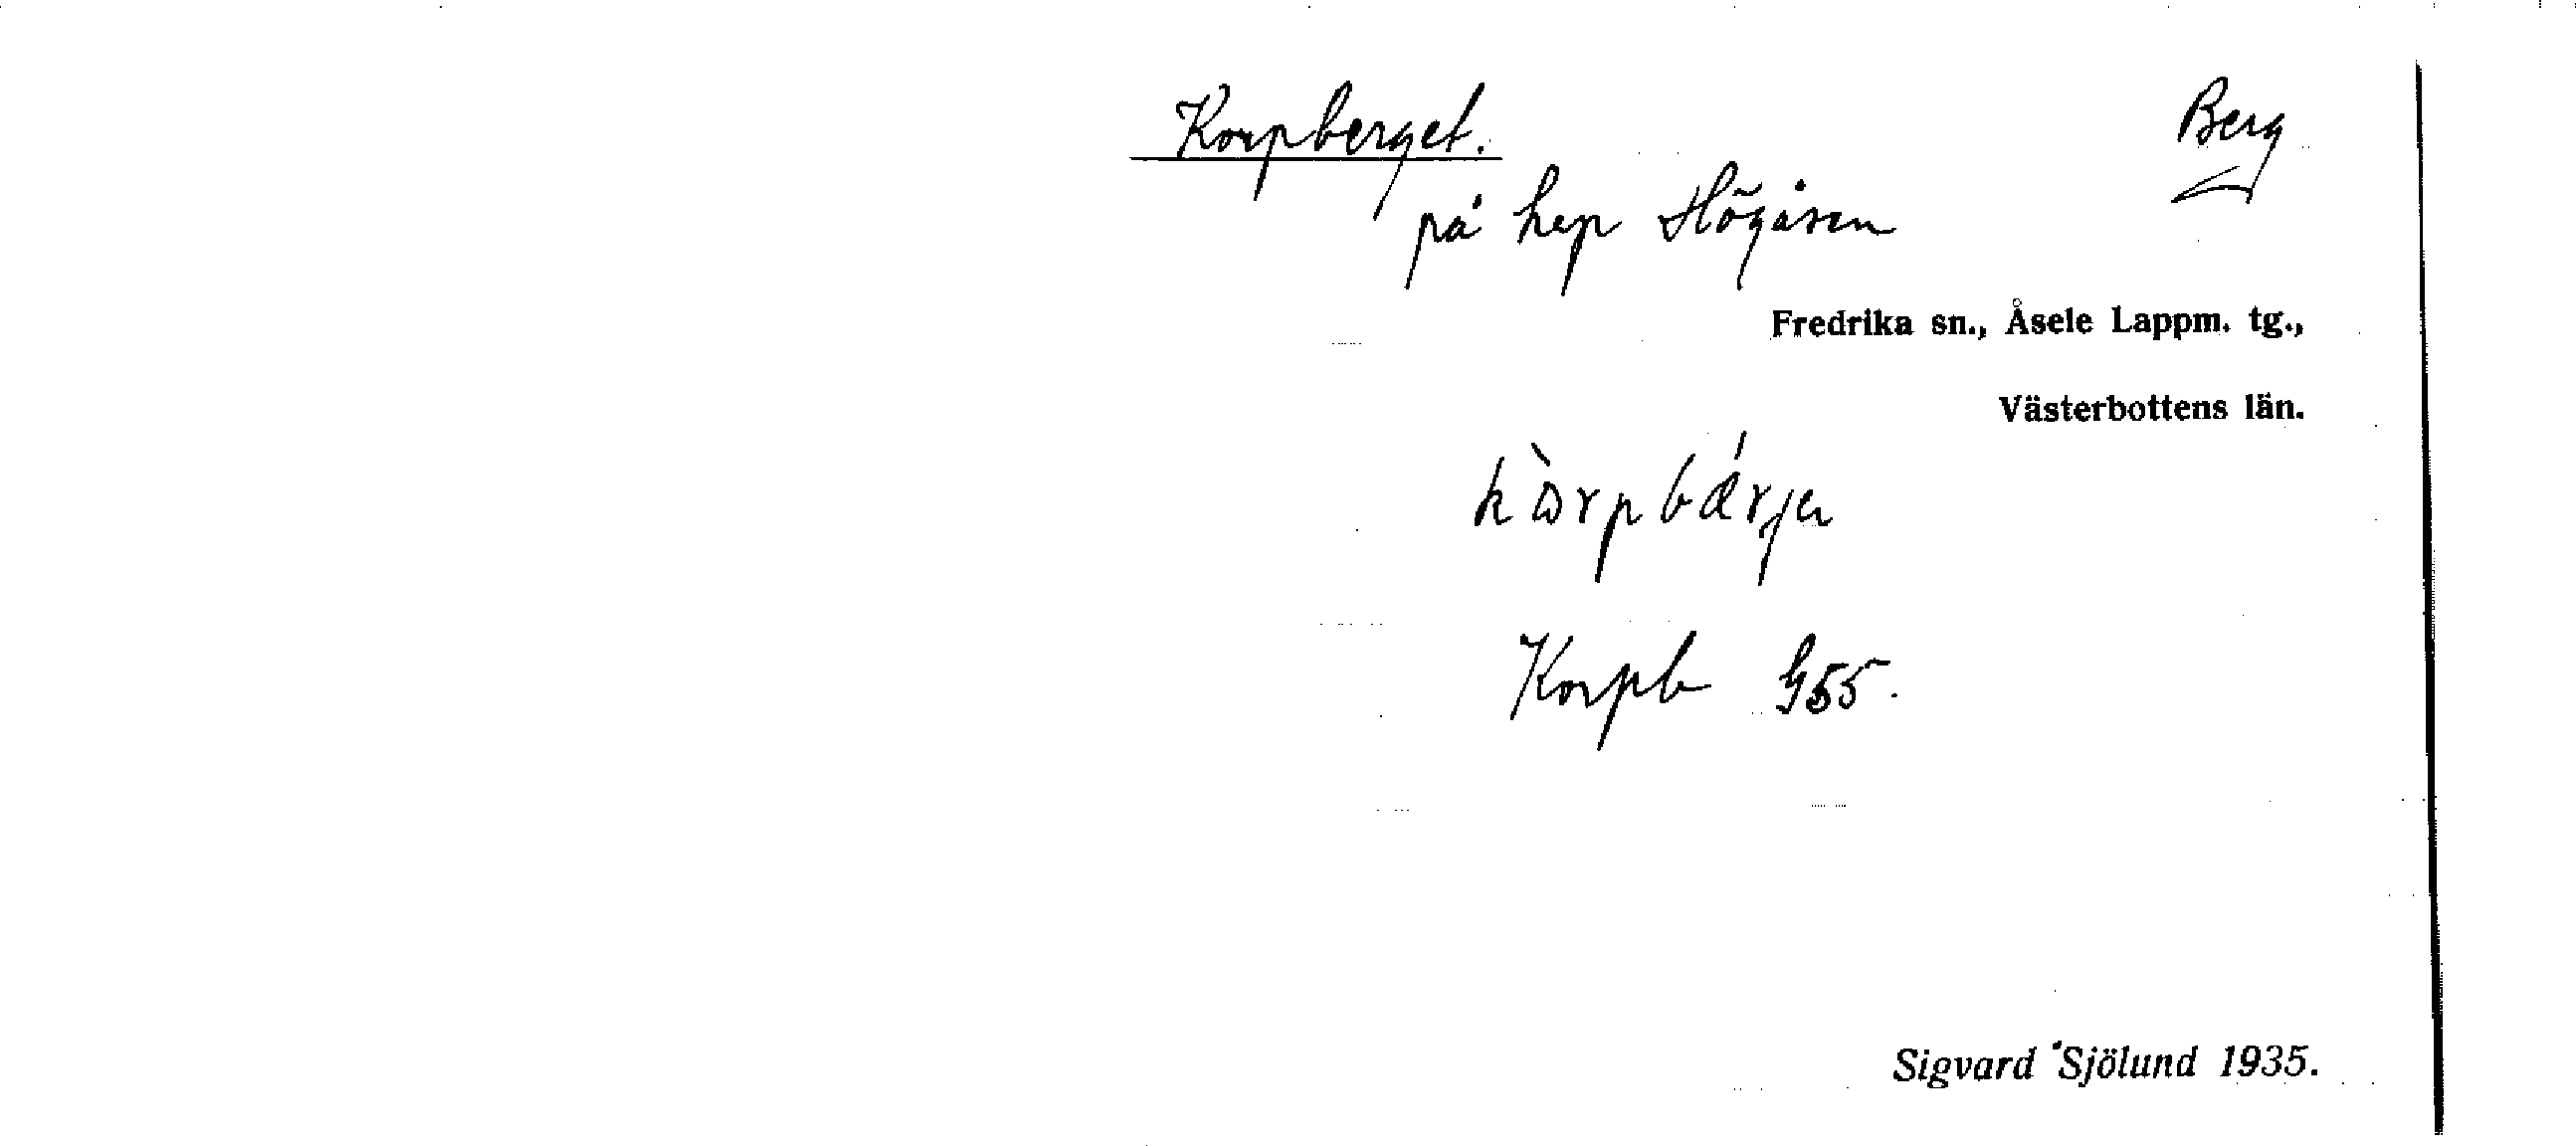 Korpberget. Berg
på hep Högåsen
Fredrika sn., Åsele Lappm. tg.,
Västerbottens län.
kòrpbǽrjɐ
Korpb G55.
Sigvard Sjölund 1935.